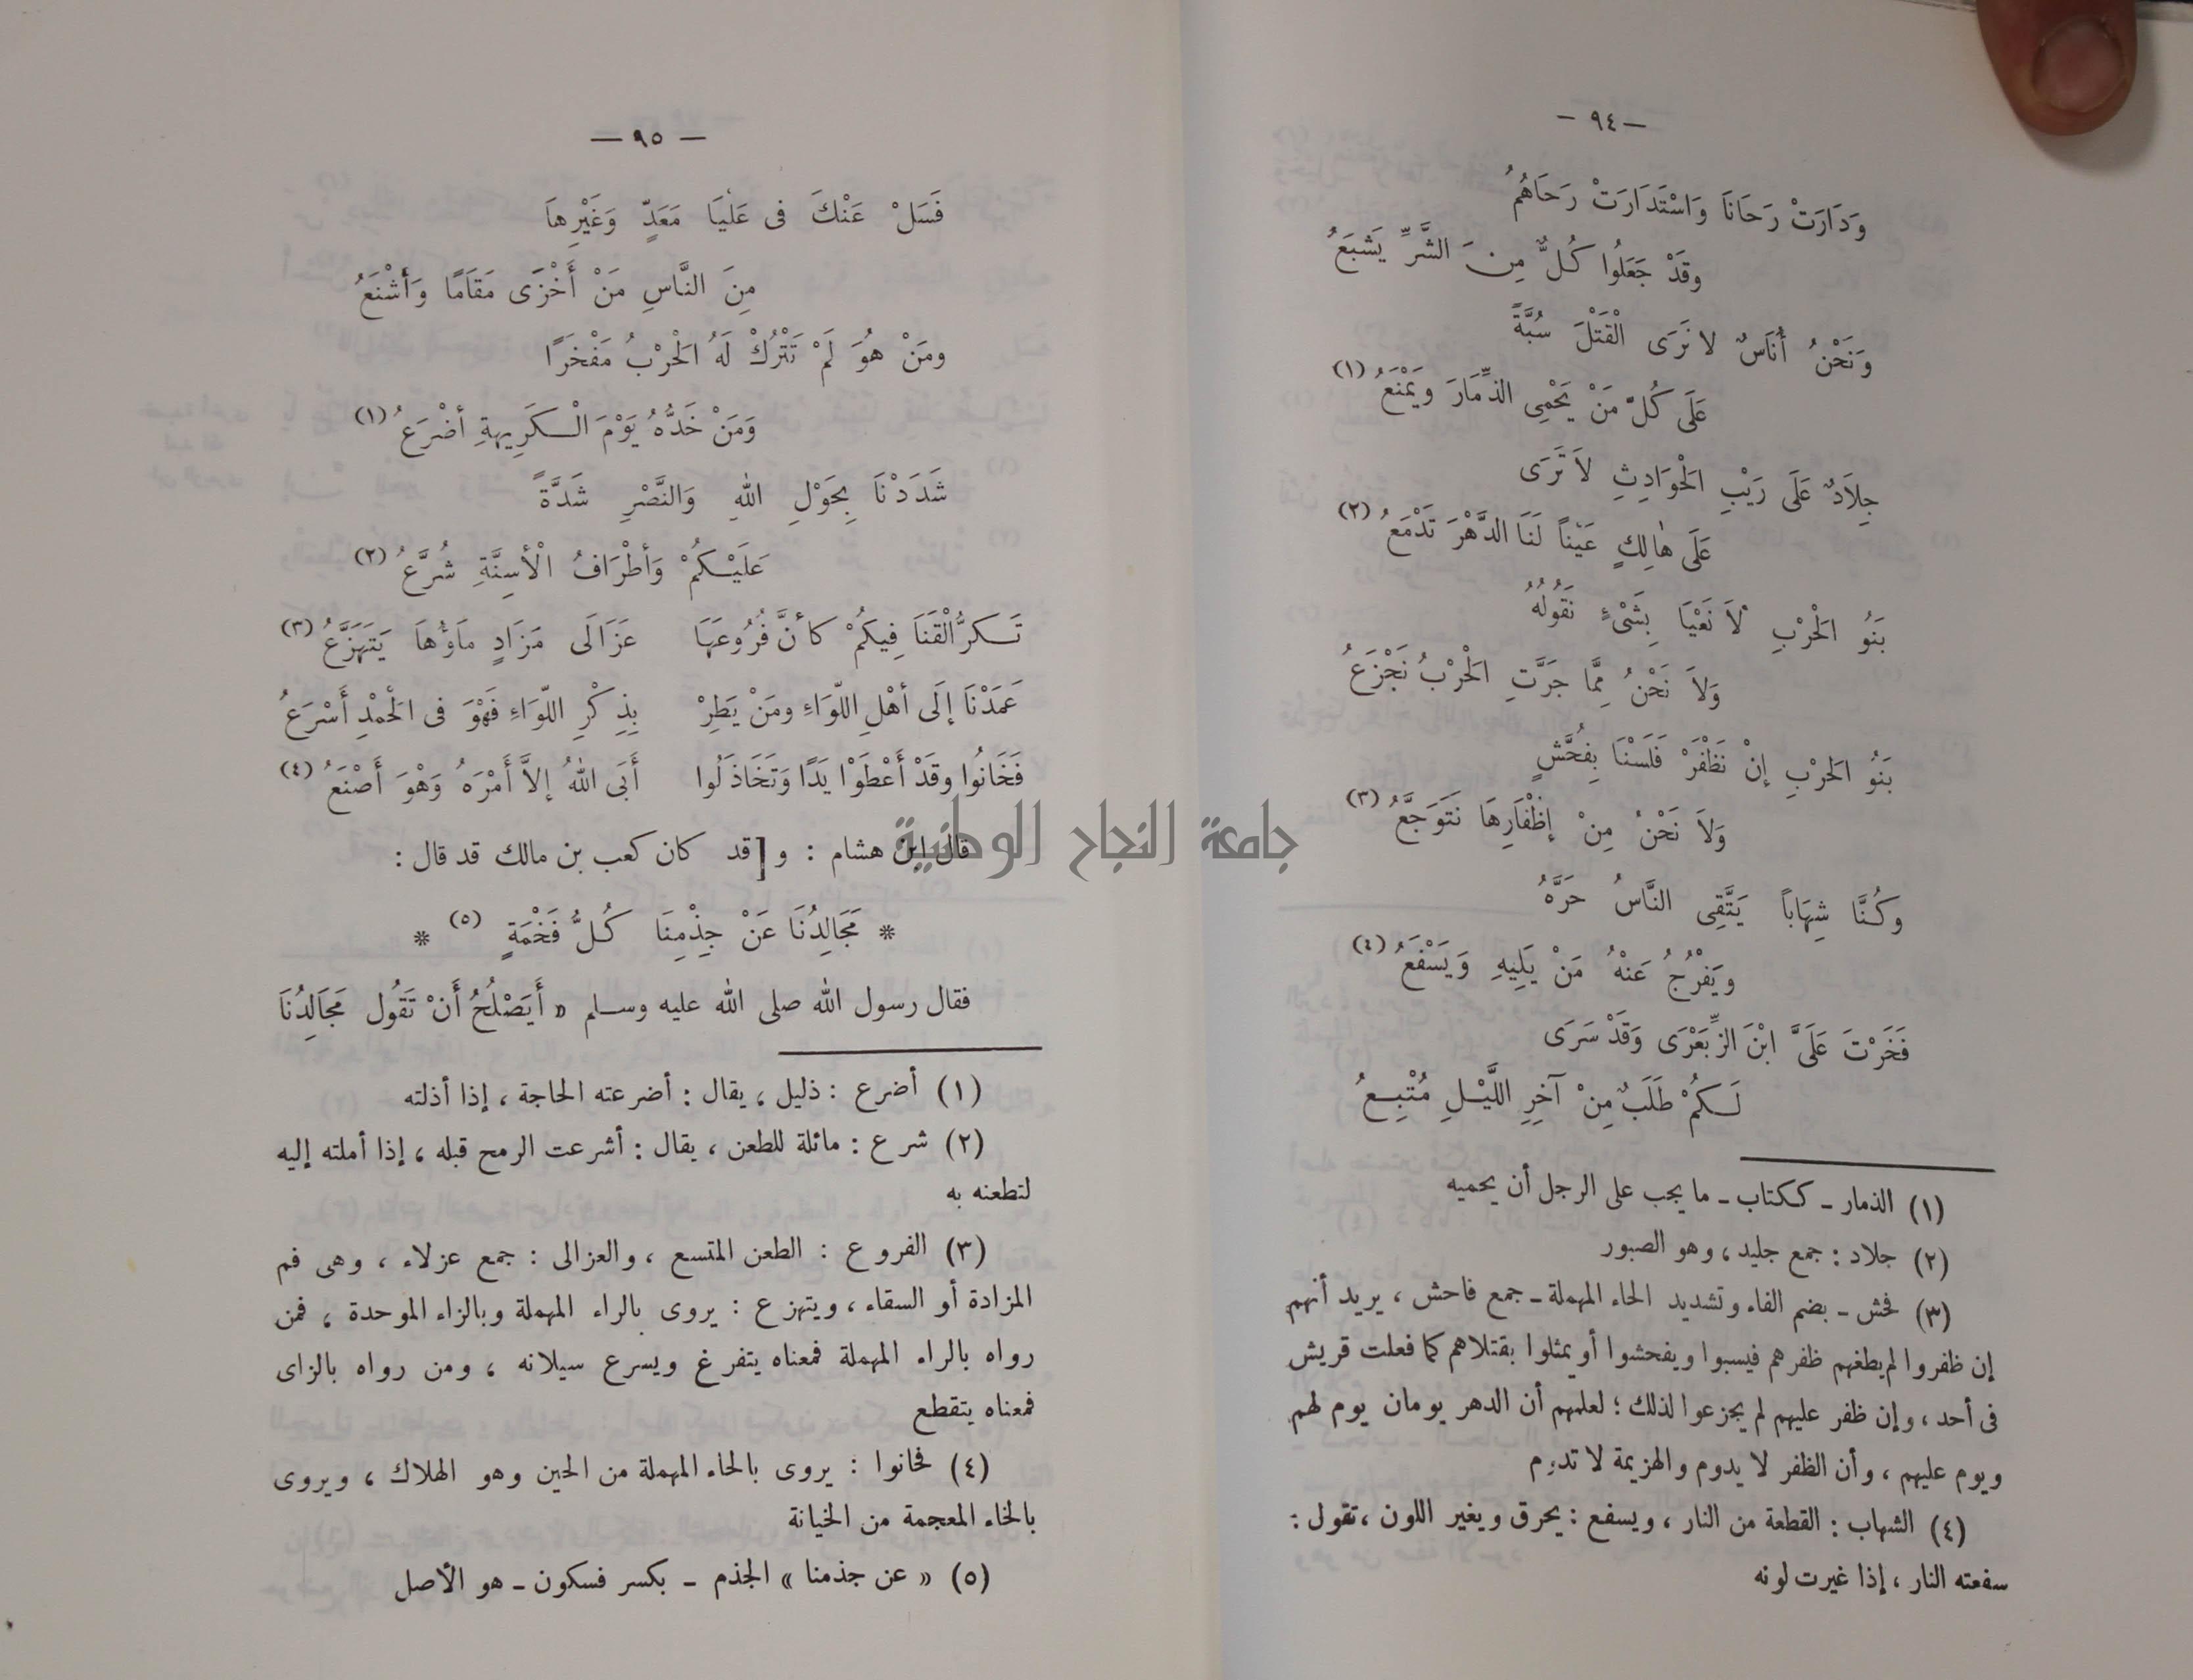 — ٩٤ —
وَدَارَتْ رَحَانَا وَاسْتَدَارَتْ رَحَاهُمُ
وقَدْ جَعَلُوا كُلٌّ مِنَ الشَّرِّ يَشْبَعُ
وَنَحْنُ أُنَاسٌ لا نَرَى الْقَتْلَ سُبَّةً
عَلَى كُلِّ مَنْ يَحْمِى الذِّمَارَ وَيَمْنَعُ (١)
جِلاَدٌ عَلَى رَيْبِ الْحَوَادِثِ لاَ تَرَى
عَلَى هَالِكٍ عَيْناً لَنَا الدَّهْرَ تَدْمَعُ (٢)
بَنُو الْحَرْبِ لاَ نَعْيَا بِشَىْءٍ نَقُولُهُ
وَلاَ نَحْنُ مِمَّا جَرَّتِ الْحَرْبُ نَجْزَعُ
بَنُو الْحَرْبِ إنْ نَظْفَرْ فَلَسْنَا بِفُحَّشٍ
وَلاَ نَحْنُ مِنْ إظْفَارِهَا نَتَوَجَّعُ (٣)
وَكُنَّا شِهَاباً يَتَّقِى النَّاسُ حَرَّهُ
وَيَفْرُجُ عَنْهُ مَنْ يَلِيهِ وَيَسْفَعُ (٤)
فَخَرْتَ عَلَىَّ ابْنَ الزِّبَعْرَى وَقَدْ سَرَى
لَكُمْ طَلَبٌ مِنْ آخِرِ اللَّيْلِ مُتْبِعُ
(١) الذمار ـ ككتاب ـ ما يجب على الرجل أن يحميه
(٢) جلاد : جمع جليد ، وهو الصبور
(٣) فحش ـ بضم الفاء وتشديد الحاء المهملة ـ جمع فاحش ، يريد أنهم
إن ظفروا لم يطغهم ظفرهم فيسبوا ويفحشوا أو يمثلوا بقتلاهم كما فعلت قريش
فى أحد ، وإن ظفر عليهم لم يجزعوا لذلك ؛ لعلمهم أن الدهر يومان يوم لهم
ويوم عليهم ، وأن الظفر لا يدوم والهزيمة لا تدوم
(٤) الشهاب : القطعة من النار ، ويسفع : يحرق ويغير اللون ، تقول :
سفعته النار ، إذا غيرت لونه
— ٩٥ —
فَسَلْ عَنْكَ فى عَلْيَا مَعَدٍّ وَغَيْرِهاَ
مِنَ النَّاسِ مَنْ أَخْزَى مَقَامًا وَأَشْنَعُ
ومَنْ هُوَ لَمْ تَتْرُكْ لَهُ الْحَرْبُ مَفْخَرًا
وَمَنْ خَدُّهُ يَوْمَ الْكَرِيهةِ أضْرَعُ (١)
شَدَدْنَا بِحَوْلِ اللهِ وَالنَّصْرِ شَدَّةً
عَلَيْكُمْ وَأطْرَافُ الْأسِنَّةِ شُرَّعُ (٢)
تَكرُّ الْقَنَا فِيكُمْ كأنَّ فُرُوعَهَا عَزَالَى مَزَادٍ مَاؤُهاَ يَتَهَزَّعُ (٣)
عَمَدْنَا إلَى أهْلِ اللّوَاءِ ومَنْ يَطِرْ بِذِكْرِ اللّوَاءِ فَهْوَ فى الْحَمْدِ أَسْرَعُ
فَخَانُوا وقَدْ أَعْطَوْا يَدًا وَتَخَاذَلُوا أَبَى اللهُ إلاَّ أَمْرَهُ وَهْوَ أَصْنَعُ (٤)
قال ابن هشام : و [قد كان كعب بن مالك قد قال :
* مَجَالِدُنَا عَنْ جِذْمِنَا كُلُّ فَخْمَةٍ (٥) *
فقال رسول الله صلى الله عليه وسلم « أَيَصْلُحُ أَنْ تَقُول مَجَالِدُنَا
(١) أضرع : ذليل ، يقال : أضرعته الحاجة ، إذا أذلته
(٢) شرع : مائلة للطعن ، يقال : أشرعت الرمح قبله ، إذا أملته إليه
لتطعنه به
(٣) الفروع : الطعن المتسع ، والعزالى : جمع عزلاء ، وهى فم
المزادة أو السقاء ، ويتهزع : يروى بالراء المهملة وبالزاء الموحدة ، فمن
رواه بالراء المهملة فمعناه يتفرغ ويسرع سيلانه ، ومن رواه بالزاى
فمعناه يتقطع
(٤) فخانوا : يروى بالحاء المهملة من الحين وهو الهلاك ، ويروى
بالخاء المعجمة من الخيانة
(٥) « عن جذمنا » الجذم ـ بكسر فسكون ـ هو الأصل
جامعة النجاح الوطنية